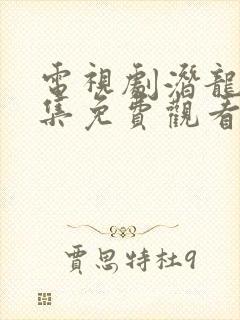 電視劇潛龍
集免費觀看
賈思特杜9